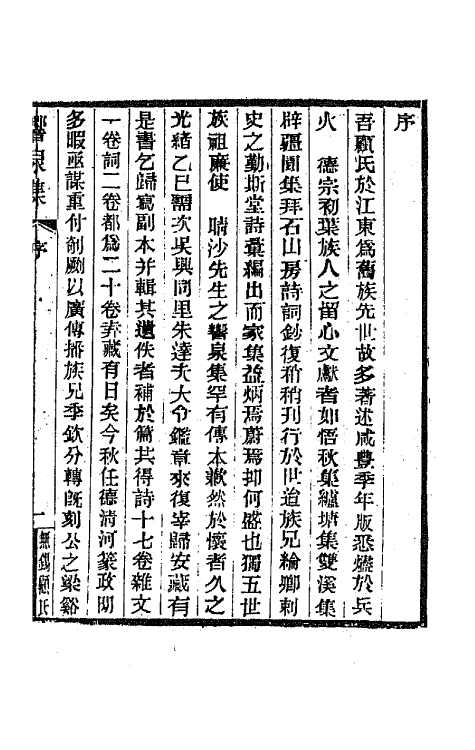 序
吾顧氏於江東爲舊族先世故多著述咸豐季年版悉燼於兵
火　德宗初葉族人之留心文獻者如悟秋集纑塘集雙溪集
辟疆園集拜石山房詩詞鈔復稍稍刊行於世道族兄綸卿刺
史之勤斯堂詩彙編出而家集益炳焉蔚焉抑何盛也獨五世
族祖廉使　晴沙先生之響泉集罕有傳本歉然於懷者久之
光緒乙巳需次吳興同里朱達夫大令鑑章來復宰歸安藏有
是書乞歸寫副本并輯其遺佚者補於篇共得詩十七卷雜文
一卷詞二卷都爲二十卷弆藏有日矣今秋任德清河篆政閒
多暇亟謀重付剞劂以廣傳播族兄季欽分轉既刻公之梁谿
響泉集
序
一
無錫顧氏